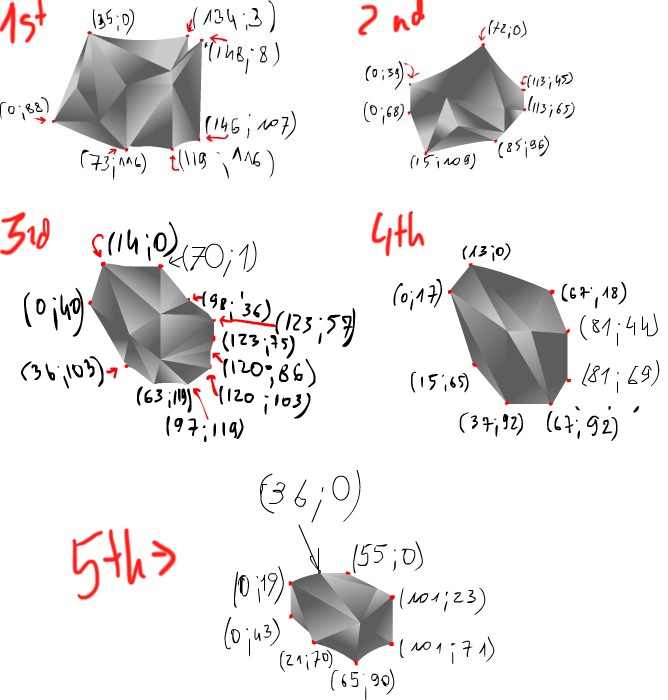 1st
(35;0)
(134;3)
(148;8)
(0;88)
(146;107)
(73;116)
(119;116)
2nd
(72;0)
(0;39)
(113;45)
(0;68)
(113;65)
(85;96)
(15;109)
3rd
(14;0)
(70;1)
(0;40)
(98;36)
(123;57)
(123;75)
(36;103)
(120;86)
(63;119)
(120;103)
(97;119)
4th
(13;0)
(0;17)
(67;18)
(81;44)
(15;65)
(81;69)
(37;92)
(67;92)
5th
(36;0)
(55;0)
(0;19)
(101;23)
(0;43)
(101;71)
(21;70)
(65;90)